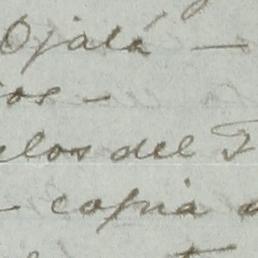 Ojalá —
ios -
elos del
- copia